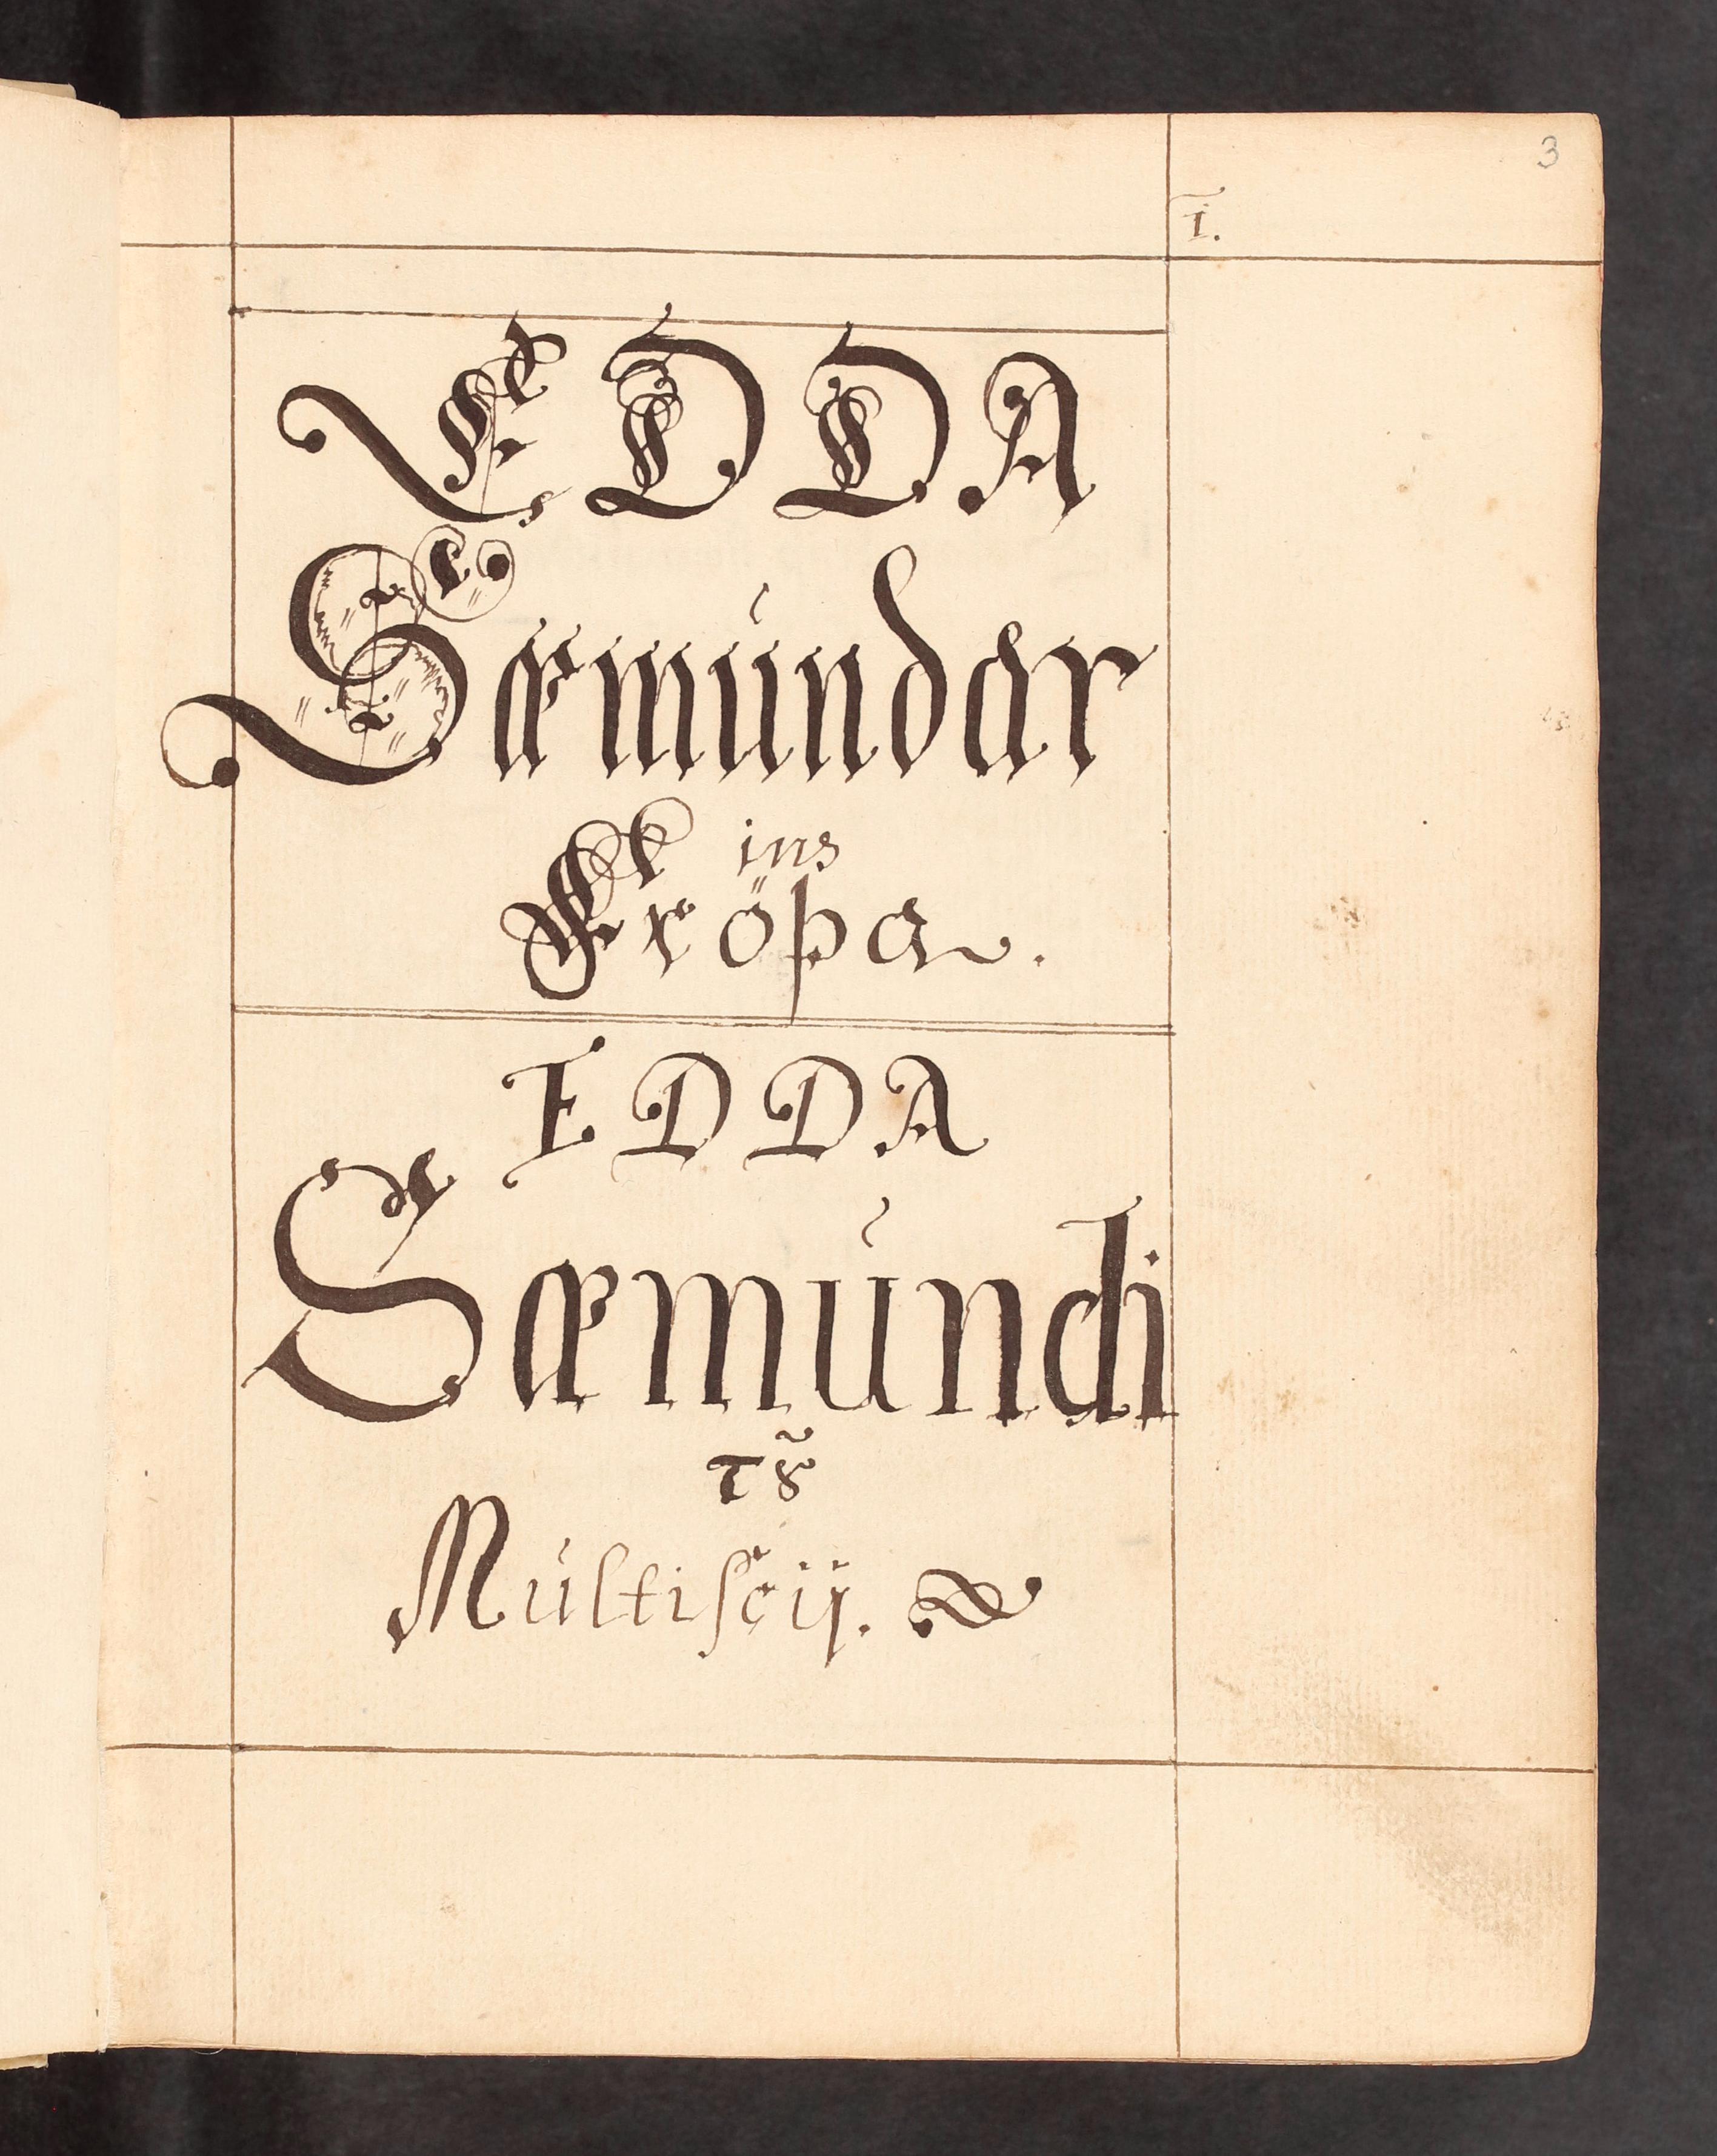 3
1.
EDDA
Sæmúndar
ins
Fröþa.
EDDA
Sæmúndi
τȣ̃
Múltiſcij.